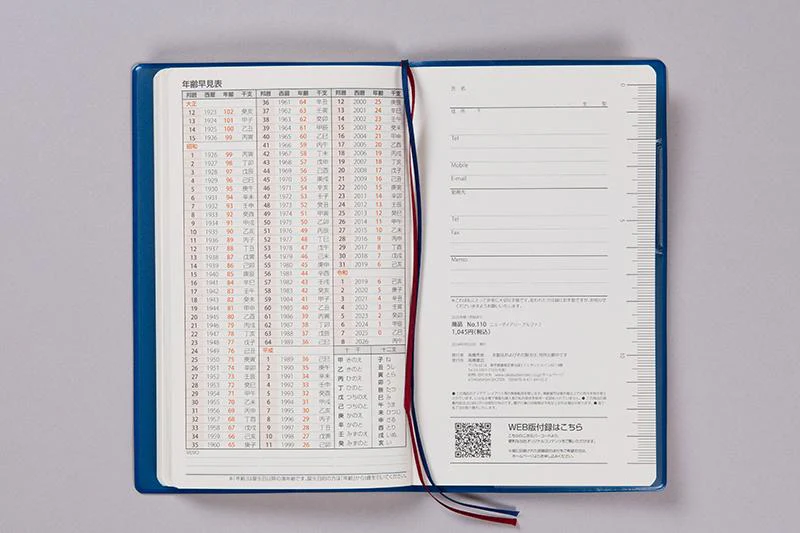 年齢早見表
邦暦 西暦 年齢 干支
大正
12 1923 102 癸亥
13 1924 101 甲子
14 1925 100 乙丑
15 1926 99 丙寅
昭和
1 1926 99 丙寅
2 1927 98 丁卯
3 1928 97 戊辰
4 1929 96 己巳
5 1930 95 庚午
6 1931 94 辛未
7 1932 93 壬申
8 1933 92 癸酉
9 1934 91 甲戌
10 1935 90 乙亥
11 1936 89 丙子
12 1937 88 丁丑
13 1938 87 戊寅
14 1939 86 己卯
15 1940 85 庚辰
16 1941 84 辛巳
17 1942 83 壬午
18 1943 82 癸未
19 1944 81 甲申
20 1945 80 乙酉
21 1946 79 丙戌
22 1947 78 丁亥
23 1948 77 戊子
24 1949 76 己丑
25 1950 75 庚寅
26 1951 74 辛卯
27 1952 73 壬辰
28 1953 72 癸巳
29 1954 71 甲午
30 1955 70 乙未
31 1956 69 丙申
32 1957 68 丁酉
33 1958 67 戊戌
34 1959 66 己亥
35 1960 65 庚子
邦暦 西暦 年齢 干支
36 1961 64 辛丑
37 1962 63 壬寅
38 1963 62 癸卯
39 1964 61 甲辰
40 1965 60 乙巳
41 1966 59 丙午
42 1967 58 丁未
43 1968 57 戊申
44 1969 56 己酉
45 1970 55 庚戌
46 1971 54 辛亥
47 1972 53 壬子
48 1973 52 癸丑
49 1974 51 甲寅
50 1975 50 乙卯
51 1976 49 丙辰
52 1977 48 丁巳
53 1978 47 戊午
54 1979 46 己未
55 1980 45 庚申
56 1981 44 辛酉
57 1982 43 壬戌
58 1983 42 癸亥
59 1984 41 甲子
60 1985 40 乙丑
61 1986 39 丙寅
62 1987 38 丁卯
63 1988 37 戊辰
64 1989 36 己巳
平成
1 1989 36 己巳
2 1990 35 庚午
3 1991 34 辛未
4 1992 33 壬申
5 1993 32 癸酉
6 1994 31 甲戌
7 1995 30 乙亥
8 1996 29 丙子
9 1997 28 丁丑
10 1998 27 戊寅
11 1999 26 己卯
邦暦 西暦 年齢 干支
12 2000 25 庚辰
13 2001 24 辛巳
14 2002 23 壬午
15 2003 22 癸未
16 2004 21 甲申
17 2005 20 乙酉
18 2006 19 丙戌
19 2007 18 丁亥
20 2008 17 戊子
21 2009 16 己丑
22 2010 15 庚寅
23 2011 14 辛卯
24 2012 13 壬辰
25 2013 12 癸巳
26 2014 11 甲午
27 2015 10 乙未
28 2016 9 丙申
29 2017 8 丁酉
30 2018 7 戊戌
31 2019 6 己亥
令和
1 2019 6 己亥
2 2020 5 庚子
3 2021 4 辛丑
4 2022 3 壬寅
5 2023 2 癸卯
6 2024 1 甲辰
7 2025 0 乙巳
8 2026 丙午
十干 十二支
甲 きのえ 子 ね
乙 きのと 丑 うし
丙 ひのえ 寅 とら
丁 ひのと 卯 う
戊 つちのえ 辰 たつ
己 つちのと 巳 み
庚 かのえ 午 うま
辛 かのと 未 ひつじ
壬 みずのえ 申 さる
癸 みずのと 酉 とり
戌 いぬ
亥 い
MEMO
氏名
住所 〒
Tel
Mobile
E-mail
勤務先
Tel
Fax
Memo
0
5
10
商品 No.110 ニューダイアリー アルファ 2
1,045円(税込)
WEB版付録はこちら
こちらの二次元バーコードより、